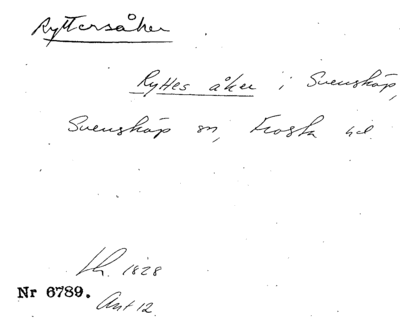 Ryttersåker
Ryttes åker i Svensköp,
Svensköp sn, Frosta hd.
Lh. 1828
Nr 6789.
Ant 12